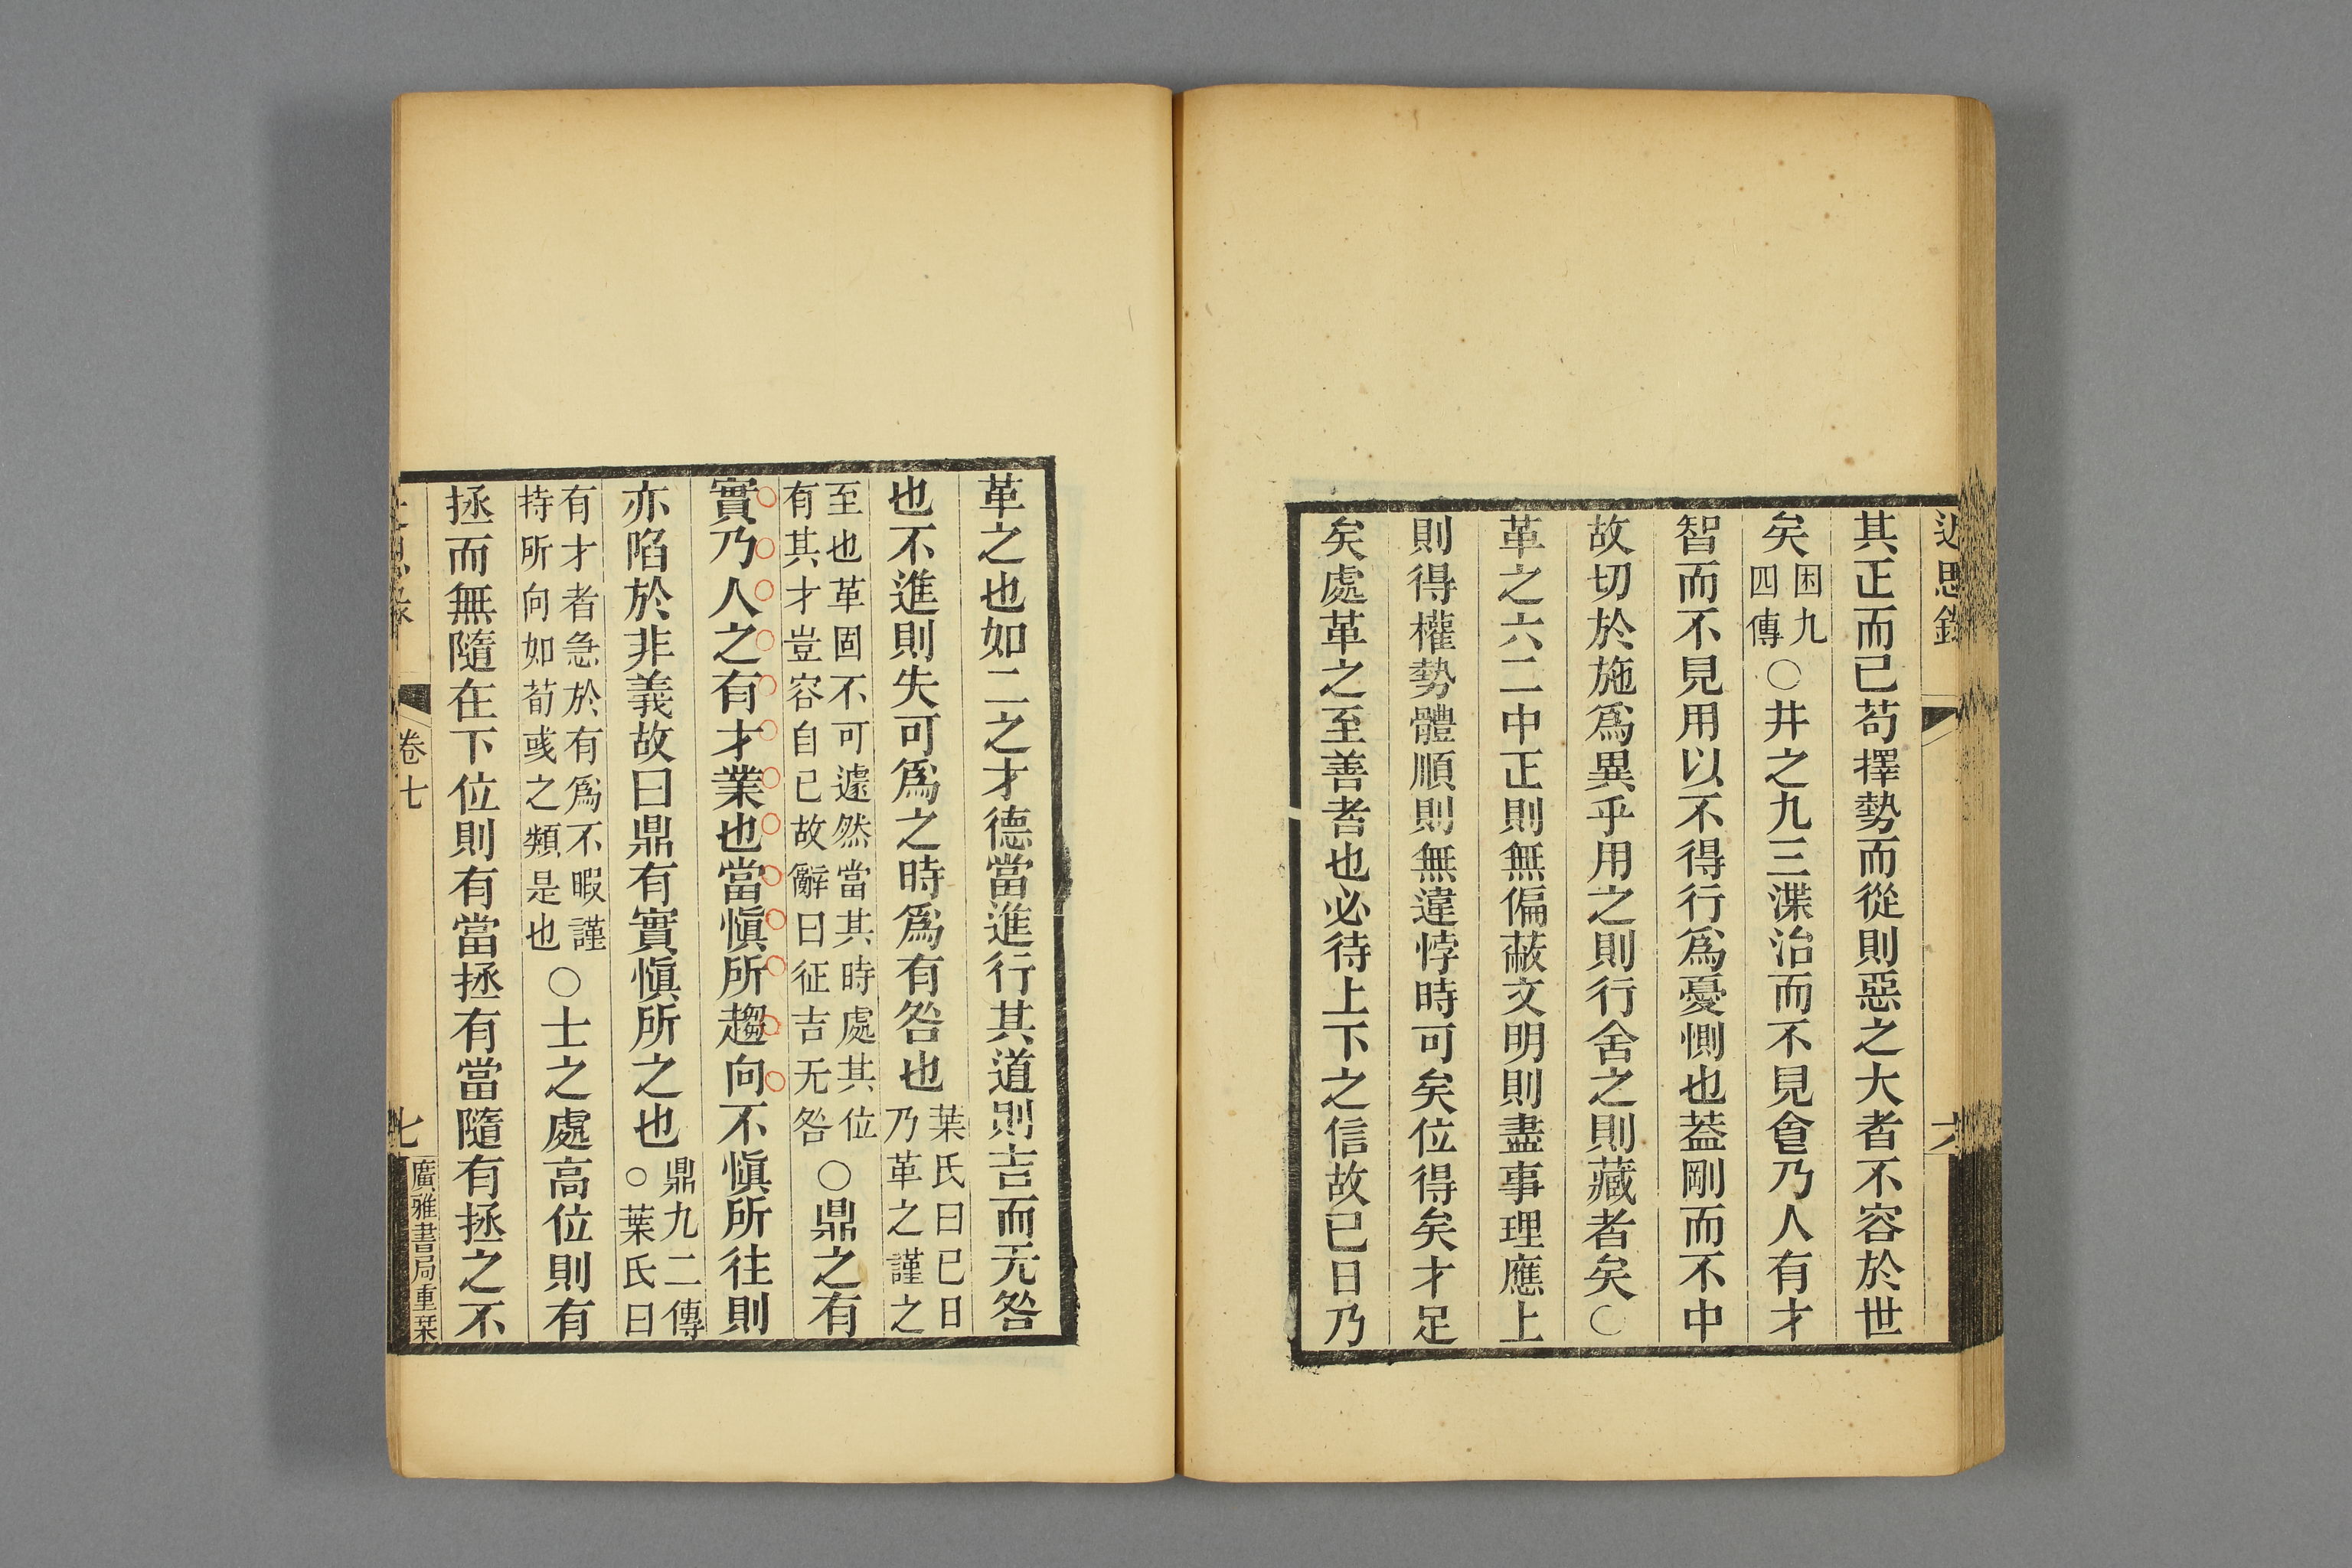 近思錄
六
其正而已苟擇勢而從則惡之大者不容於世
矣困九四傳○井之九三渫治而不見㑹乃人有才
智而不見用以不得行爲憂惻也葢剛而不中
故切於施爲異乎用之則行舍之則藏者矣○
革之六二中正則無偏蔽文明則盡事理應上
則得權勢體順則無違悖時可矣位得矣才足
矣處革之至善者也必待上下之信故已日乃
革之也如二之才德當進行其道則吉而无咎
也不進則失可爲之時爲有咎也葉氏曰已日乃革之謹之
至也革固不可遽然當其時處其位有其才豈容自已故辭曰征吉无咎○鼎之有
實乃人之有才業也當愼所趨向不愼所往則
亦陷於非義故曰鼎有實愼所之也鼎九二傳○葉氏曰
有才者急於有爲不暇謹持所向如荀彧之類是也○士之處高位則有
拯而無隨在下位則有當拯有當隨有拯之不
近思錄
卷七
七
廣雅書局重栞